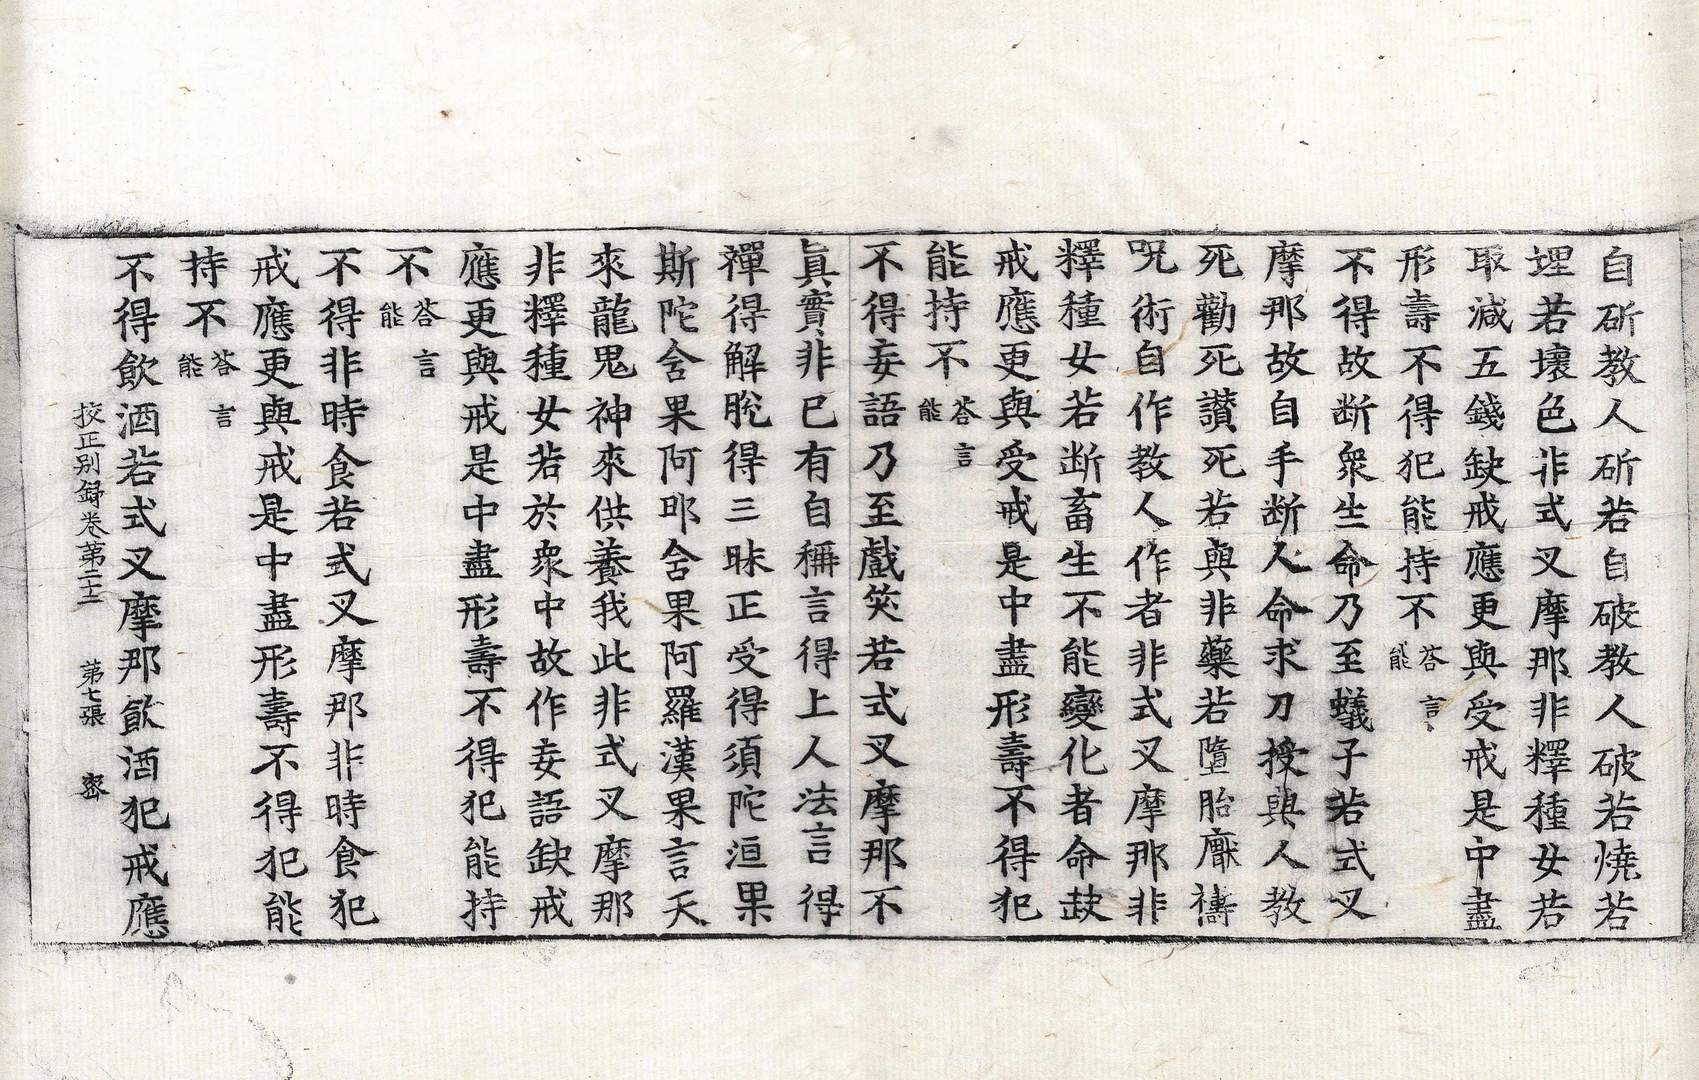 自斫教人斫若自破教人破若燒若
埋若壞色非式叉摩那非釋種女若
取減五錢缺戒應更與受戒是中盡
形壽不得犯能持不答言能
不得故断衆生命乃至蟻子若式叉
摩那故自手断人命求刀授與人教
死勸死讃死若與非藥若墮胎厭禱
呪術自作教人作者非式叉摩那非
釋種女若断畜生不能變化者命缺
戒應更與受戒是中盡形壽不得犯
能持不答言能
不得妄語乃至戲笑若式叉摩那不
眞實非已有自稱言得上人法言得
禪得解脫得三昧正受得須陀洹果
斯陀舍果阿那舍果阿羅漢果言天
來龍鬼神來供養我此非式叉摩那
非釋種女若於衆中故作妄語缺戒
應更與戒是中盡形壽不得犯能持
不答言能
不得非時食若式叉摩那非時食犯
戒應更與戒是中盡形壽不得犯能
持不答言能
不得飲酒若式叉摩那飲酒犯戒應
挍正別録卷第二十一 第七張 密